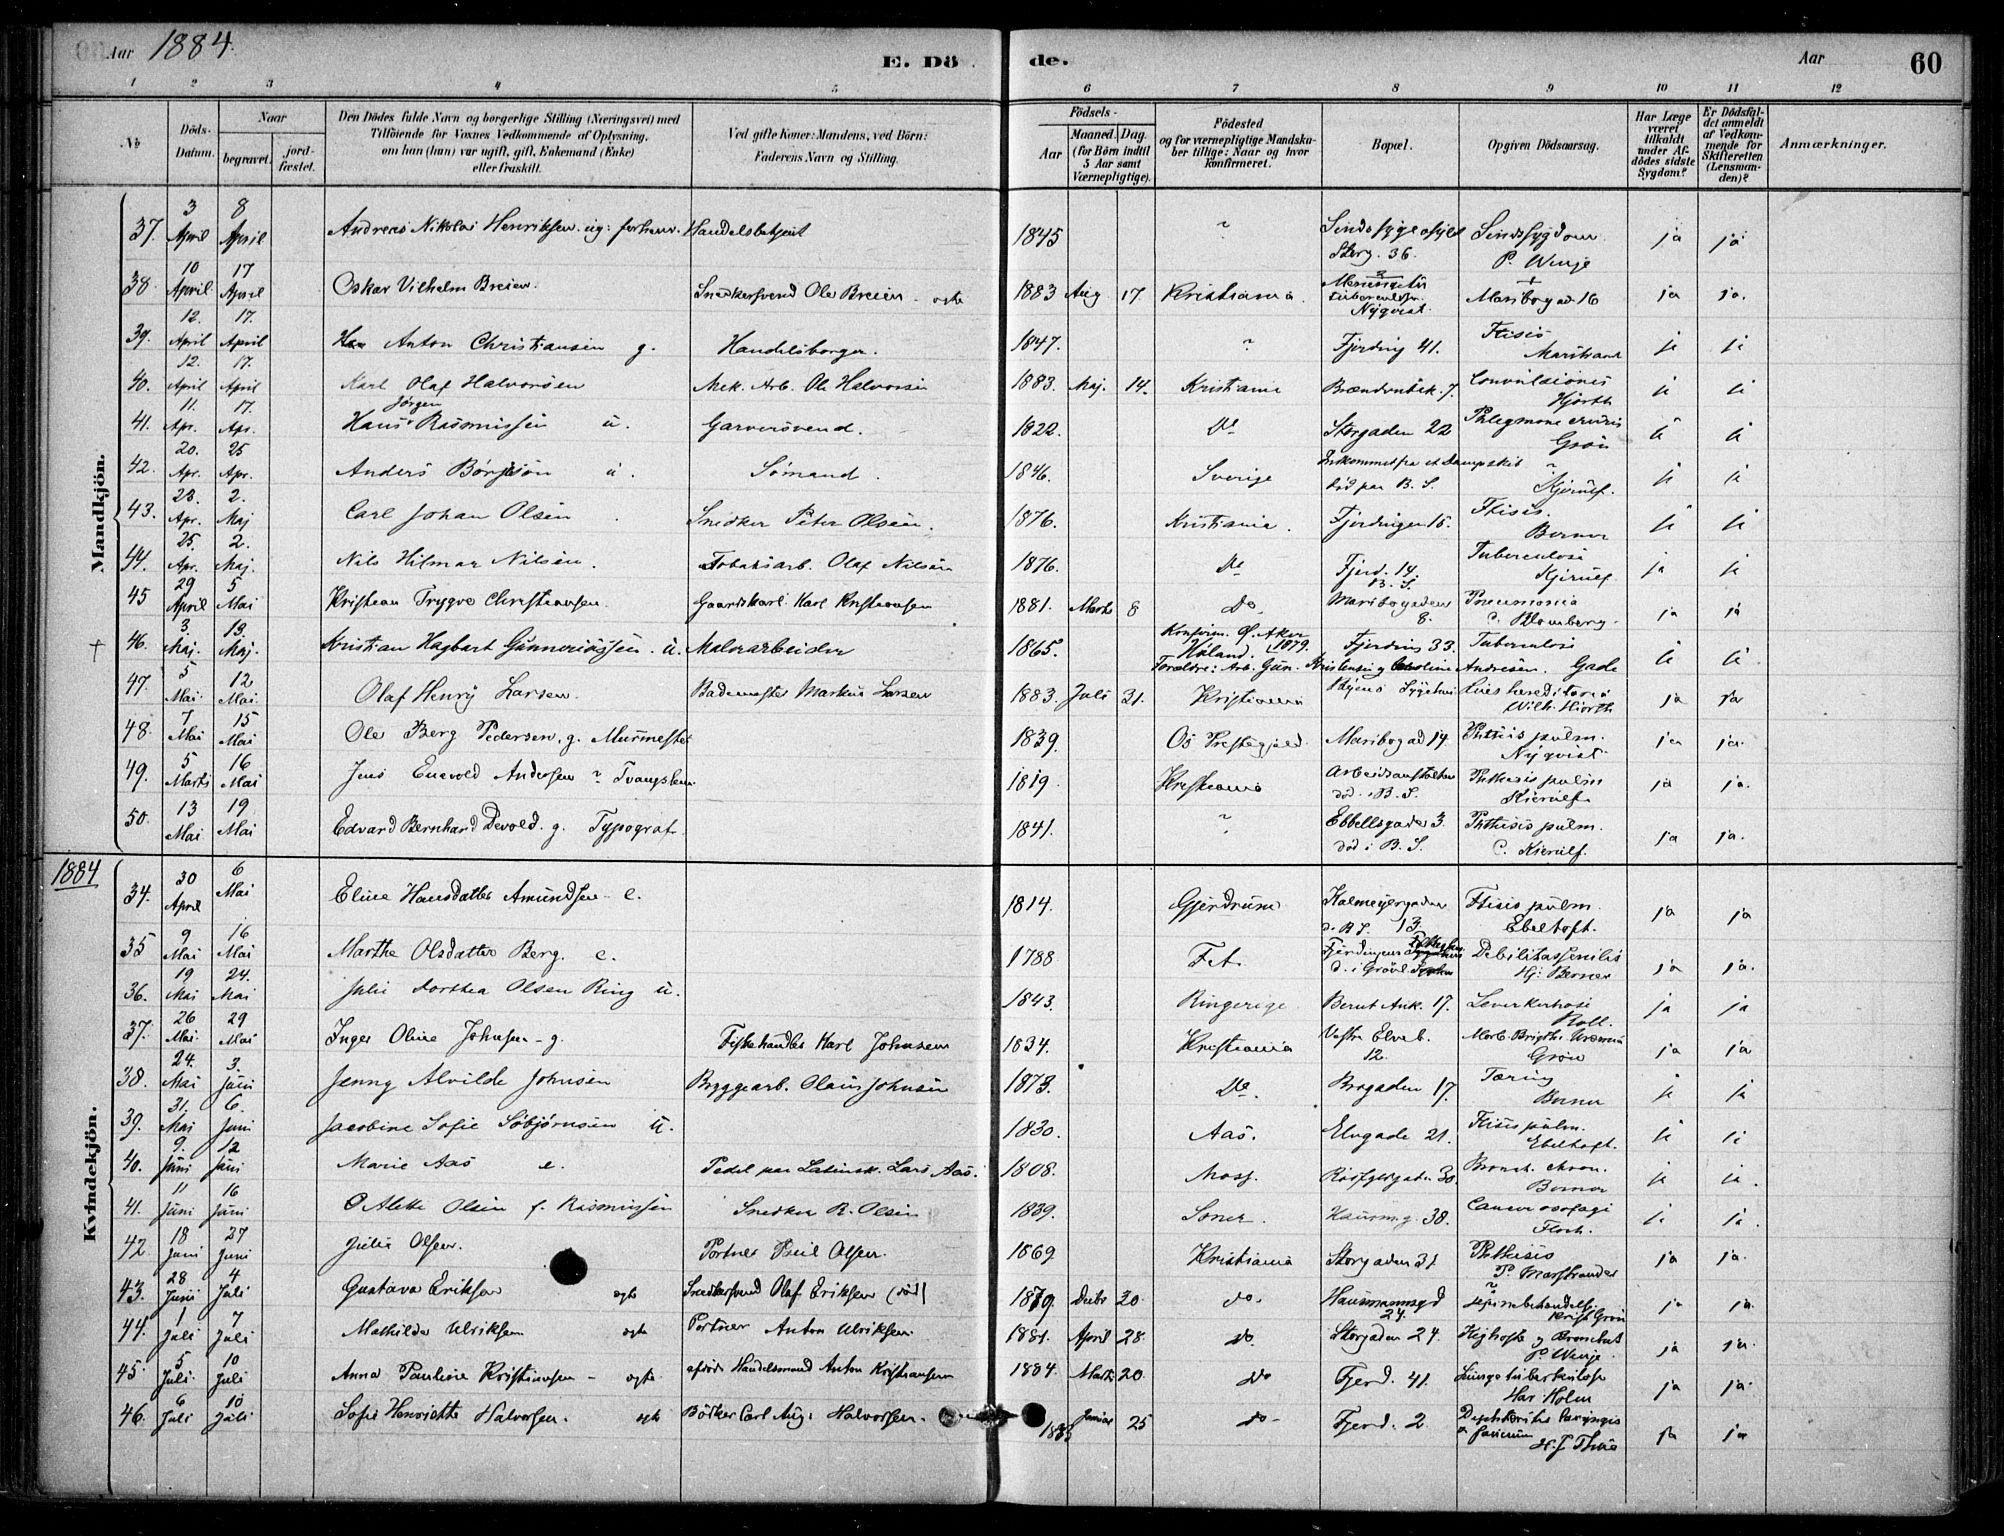 Aar 1884. E. Dö de. Aar 60
1 2 3 4 5 6 7 8 9 10 11 12
No Döds-Datum. Naar begravet. jord-fæstet. Den Dödes fulde Navn og borgerlige Stilling (Næringsvei) med Tilföiende for Voxnes Vedkommende af Oplysning, om han (hun) var ugift, gift, Enkemand (Enke) eller fraskilt. Ved gifte Koner: Mandens, ved Börn: Faderens Navn og Stilling. Födsels- Aar Maaned. Dag. (for Börn indtil 5 Aar samt Værnepligtige). Födested og for værnepligtige Mandska-ber tillige: Naar og hvor konfirmeret. Bopæl. Opgiven Dödsaarsag. Har Læge været tilkaldt under Af-dödes sidste Sygdom? Er Dödsfal-det anmeldt af Vedkom-mende for Skifteretten (Lensman-den)? Anmærkninger.
Mandkjön.
37. 3 April 8 April Andreas Nikolai Henriksen ug: forhenv. Handelsbetjent 1845 Storg. 36. Sindssygdom P. Winge ja ja
38. 10 April 17 April Oskar Vilhelm Breien. Snedkersvend Ole Breien - ægte 1883 Aug 17 Kristiania Nyqvist. Maribogad 16 ja ja.
39. 12. April 17. April Anton Christiansen g. Handelsborger. 1847. ? Fjerding 41. Ftisis ja ja
40. 12. April 17. April Karl Olaf Halvorsen Mek. Arb. Ole Halvorsen 1883. Maj. 14. Kristiania 7. Convulsiones Hjorth ja ja
41. 11. Apr. 17. Apr. Hans Jørgen Rasmussen u. Garversvend. 1822. Do Storgaden 22 Phlegmone Grøn ja ja
42. 20. Apr. 25 Apr. Anders Børjeson u. Sømand. 1846. Sverige Indkommet fra et Dampskib død paa B. S. ? Kjerulf. ja ja
43. 23. Apr. 2. Maj Carl Johan Olsen Snedker Peter Olsen. 1876. Kristiania. Fjerdingen 15. Ftisis. Berner ja ja
44. 25. Apr. 2. Maj. Nils Hilmar Nilsen. Tobaksarb. Olaf Nilsen 1876. Do Fjerd. 14. B. S. Tuberculose Kjerulf. ja ja
45 29 April 5 Mai Kristian Trygve Christiansen. Gaardskarl. Karl Kristiansen 1881. Marts 8 do. Maribogaden 8. Pneumonia C. Blomberg. ja ja
+ 46. 3. Maj. 13. Maj. Kristian Hagbart Gunneriussen. u. Malerarbeider 1865. Konfirm. Ø. Aker 1879. Høland. Fjerding 33. Tuberculose Gade ja ja
Forældre: Arb. Gun. Kristensen og Caroline Andresen.
47. 5 Mai 12 Mai. Olaf Henry Larsen. Bademester Markus Larsen 1883. Juli 31. Kristiania Lues hereditaria Wilh. Hiorth ja ja
48. 7 Mai 15 Mai Ole Berg Pedersen, g. Murmester 1839. Os Prestegjeld. Maribogad 14. Phtisis pulm. Nyqvist ja ja.
49. 5 Marts 16 Mai Jens Enevold Andersen ? Tvangslem 1819. Kristiania Arbeidsanstalten død i B. S. Phthisis pulm Kierulf. ja ja.
50. 13 Mai 19 Mai Edvard Bernhard Devold. g. Typograf. 1841. ? Ebbellsgaden 3. død i B. S. Phthisis pulm. C. Kierulf. ja ja.
1884
Kvindekjön.
34. 30 April 6 Mai Eline Hansdatter Amundsen - e. 1814. Gjerdrum Kalmeyergaden d. B S. 13 Ftisis pulm. Ebeltoft. ja ja
35 9 Mai 16 Mai Marthe Olsdatter Berg. e. 1788 Fet. Debilitas senilis Hj: Berner ja ja.
36. 19 Mai 24. Mai Julie Dorthea Olsen Ring u. 1843. Ringerige Bernt Ank. 17. Roll. ja ja
37. 26 Mai. 29 Mai Inger Oline Johnsen - g. Fiskehandler Karl Johnsen 1834. Kristiania Vestre Elveb. 12. Morb. Brigthi Uræmia Grøn ja ja
38. 24. Mai 3. Juni Jenny Alvilde Johnsen Byggearb. Olaus Johnsen 1873. Do. Brogaden 17. Tæring Berner ja ja
39. 31. Maj 6. Juni Jacobine Sofie Søbjørnsen u. 1830. Aas. Elvegade 21. Ftisis pulm. Ebeltoft. ja ja
40. 9. Juni 12 Juni Marie Aas e. Pedel paa Latinsk. Lars Aas. 1808. Moss. 30. Bronch. chron. Berner ja ja.
41. 11 Juni 16 Juni O Alette Olsen f. Rasmussen Snedker R. Olsen 1839. Soner. Hausm. g. 38. Cancer osofagi ja ja
42. 18 Juni 27 Juni Julie Olsen. Portner Paul Olsen. 1869 Kristiania Storgaden 31 Phthisis P. Marstrander ja ja.
43. 28 Juni 4 Juli Gustava Eriksen ægte Snedkersvend Olaf Eriksen (død) 1879. Decbr 20 do. Hausmannsgd 24. ? Krist. Grøn ja ja
44. 1 Juli 7 Juli Mathilde Ulriksen ægte Portner Anton Ulriksen. 1881. April 28. do Storgaden 24. Kighoste og Bronchit P. Winge. ja ja.
45. 5 Juli. 10 Juli Anna Pauline Kristiansen - ægte afdøde Handelsmand Anton Kristiansen 1884. Marts 20 do Fjerd. 41. Lungetuberkulose Har. Holm ja ja.
46. 6 Juli 10 Juli Sofie Henriette Halvorsen. ægte Bødker Carl Aug: Halvorsen. Januar 25 do Fjerd. 2. ja ja